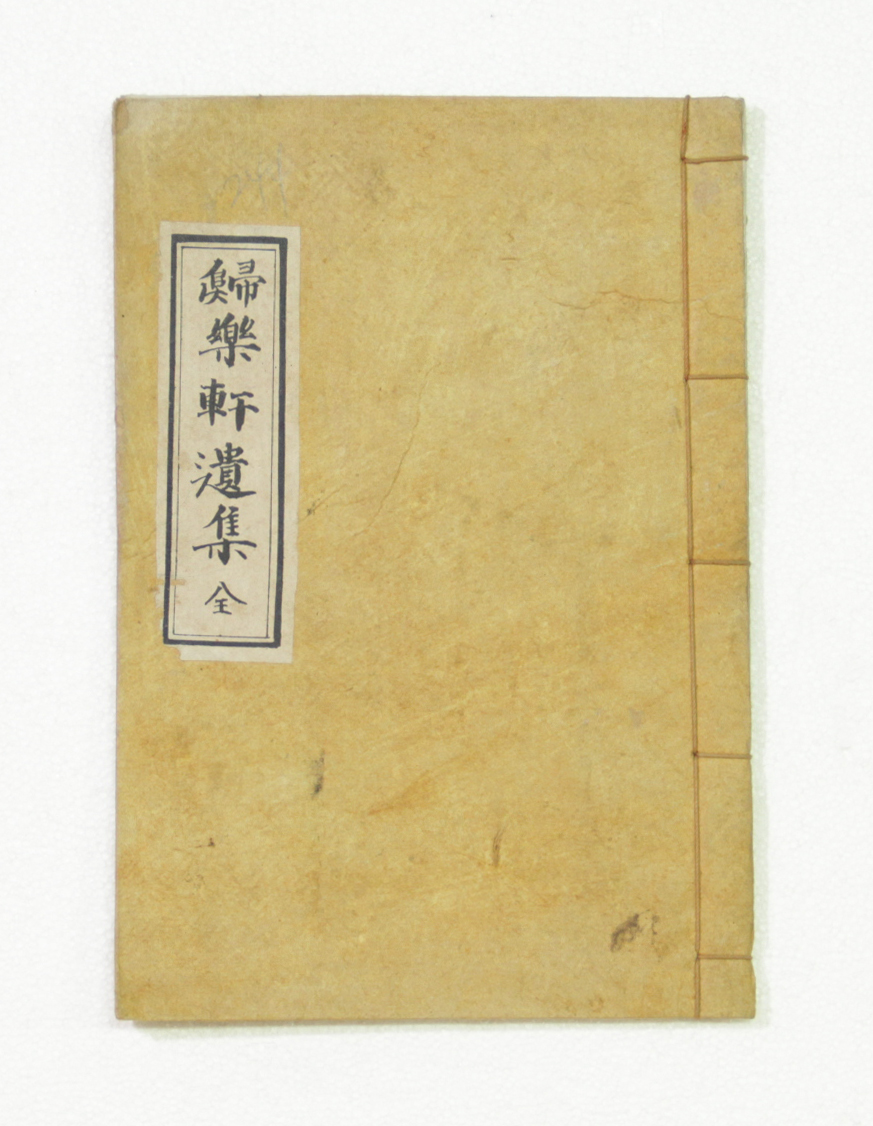 歸樂軒遺集 全